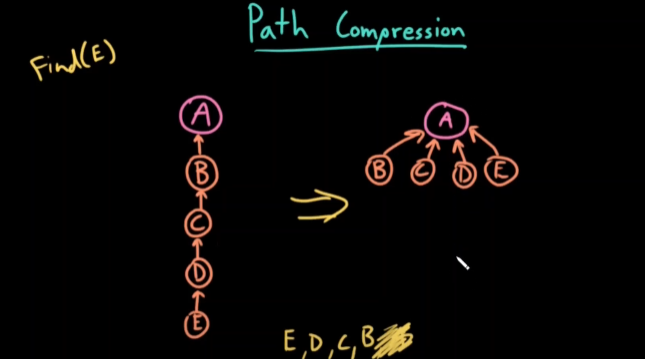 Path Compression
Find(E)
A
B
C
D
E
A
B C D E
E, D, C, B